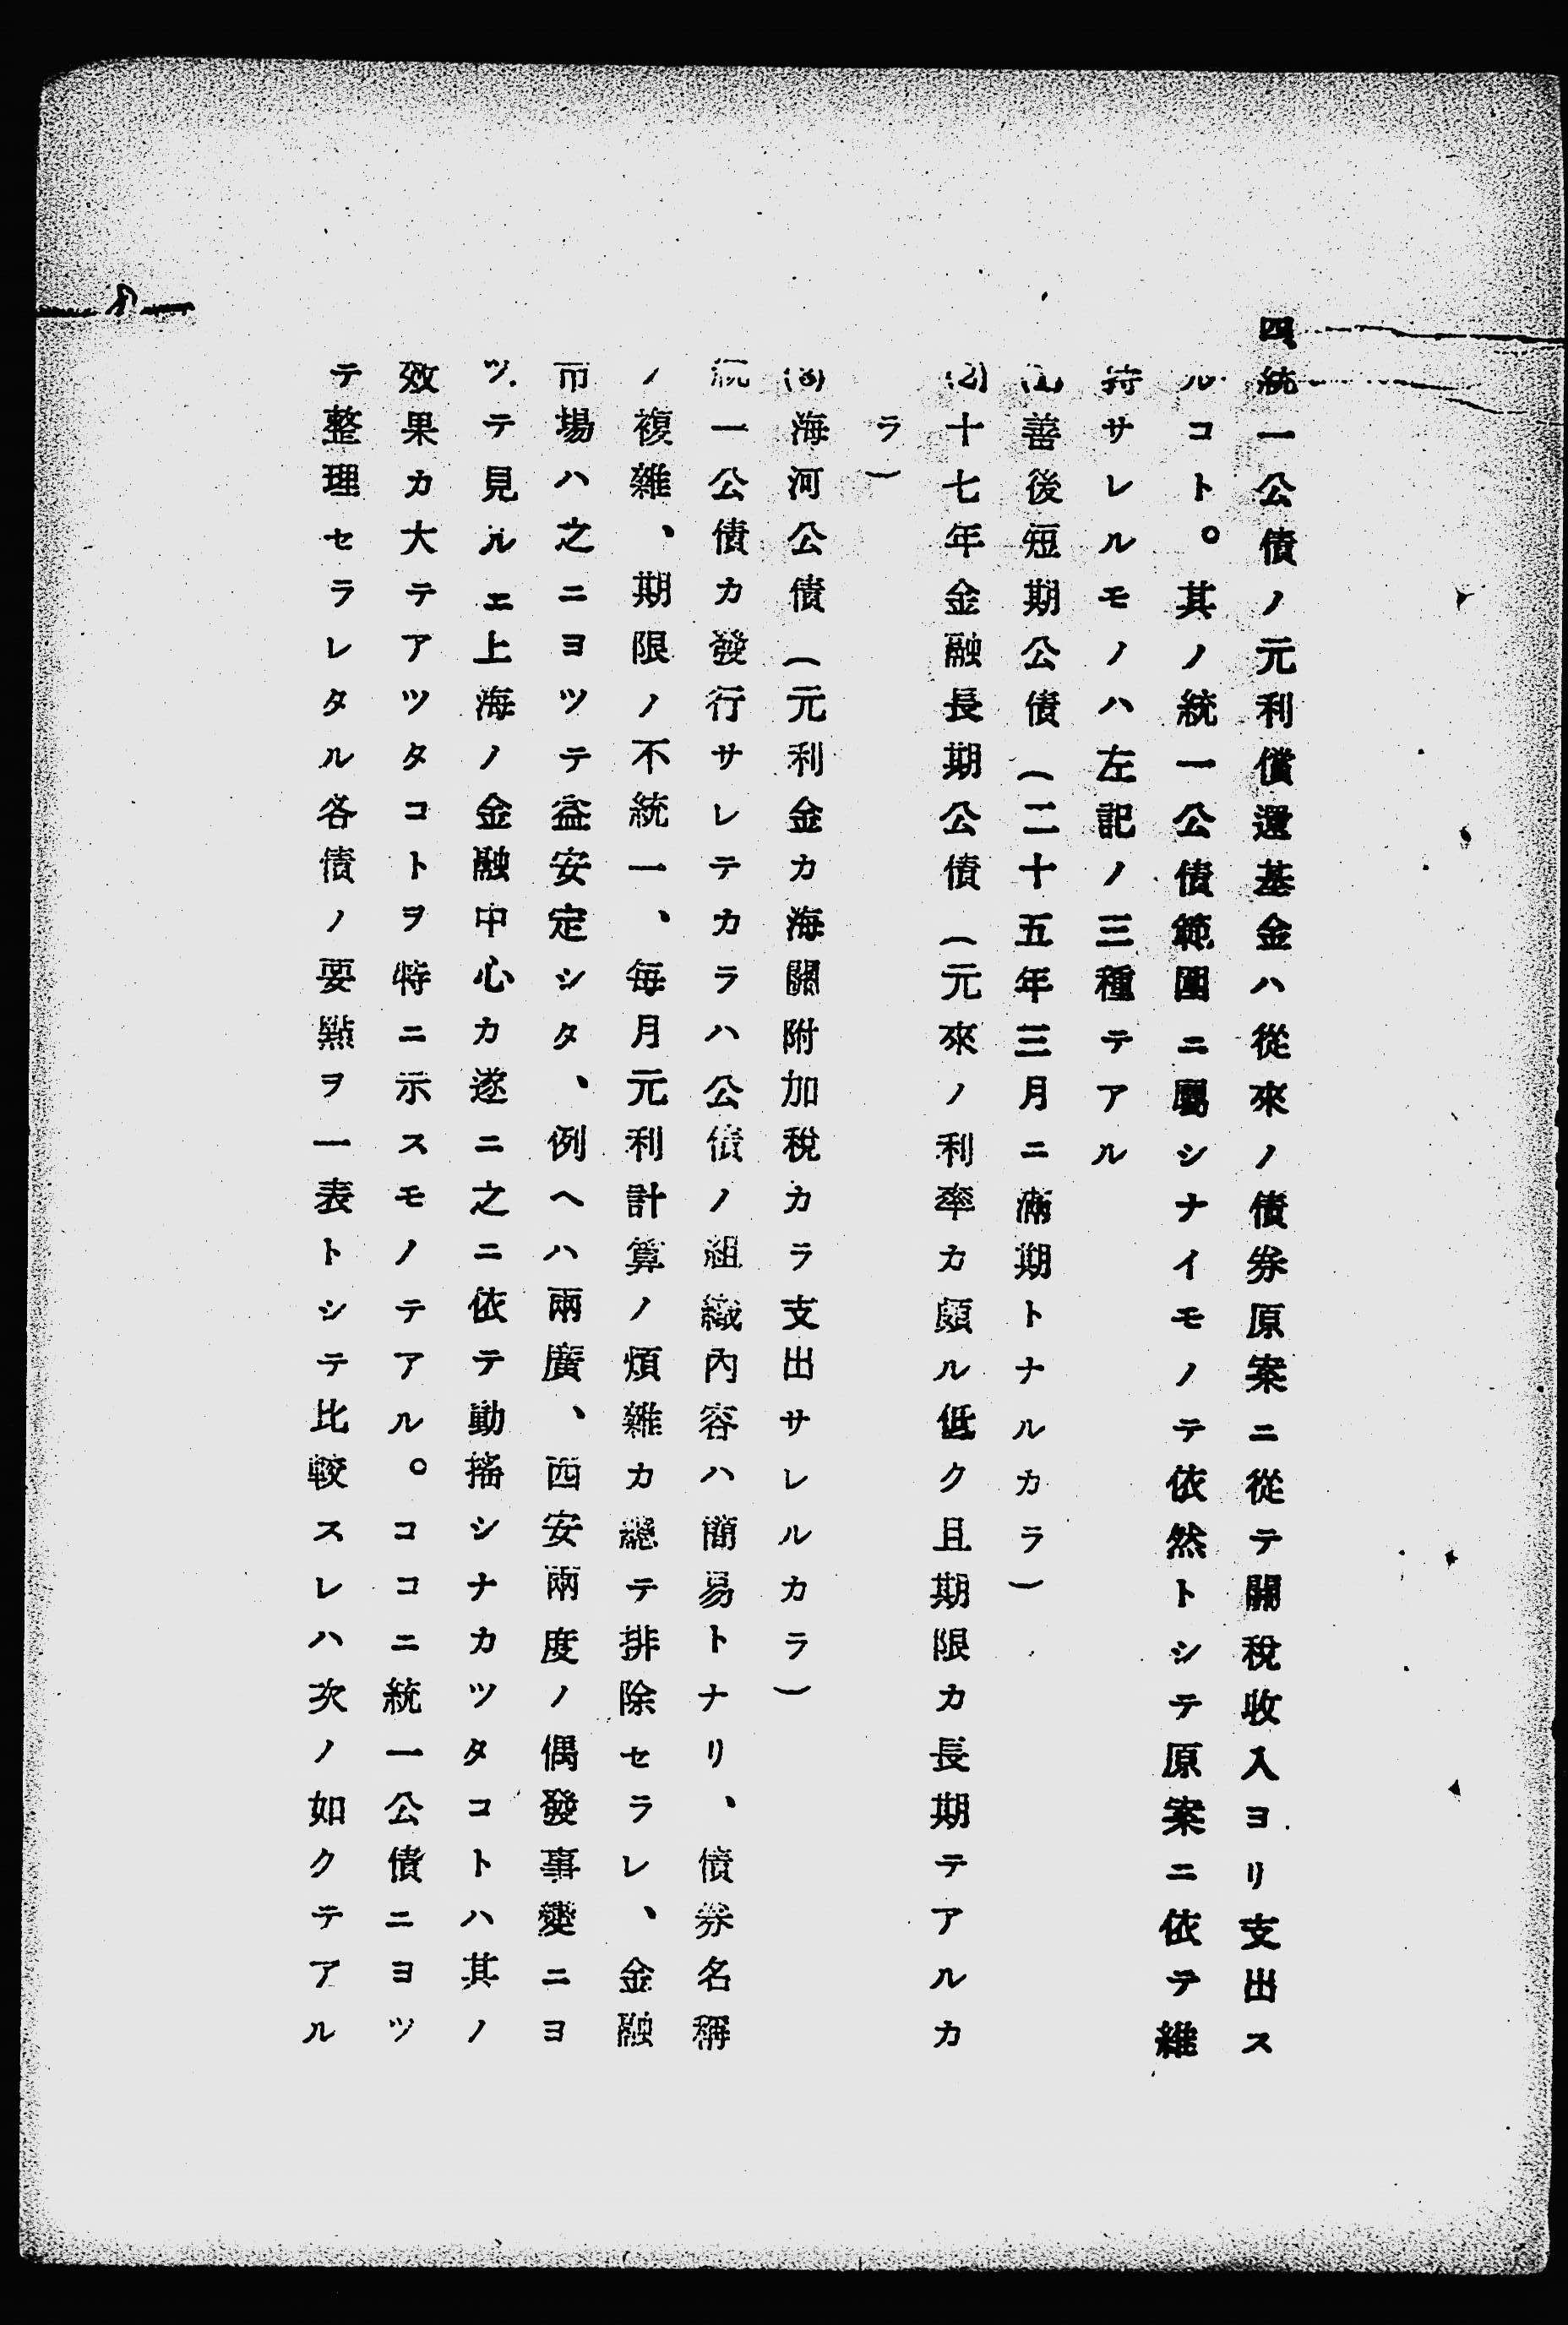 四、統一公債ノ元利償還基金ハ從來ノ債券原案ニ從テ關稅收入ヨリ支出ス
ルコト。其ノ統一公債範圍ニ屬シナイモノテ依然トシテ原案ニ依テ維
持サレルモノハ左記ノ三種テアル
(1)善後短期公債(二十五年三月ニ滿期トナルカラ)
(2)十七年金融長期公債(元來ノ利率カ頗ル低ク且期限カ長期テアルカ
ラ)
(3)海河公債(元利金カ海關附加稅カラ支出サレルカラ)
統一公債カ發行サレテカラハ公債ノ組織內容ハ簡易トナリ、債券名稱
ノ複雜、期限ノ不統一、每月元利計算ノ煩雜カ總テ排除セラレ、金融
市場ハ之ニヨツテ益安定シタ、例ヘハ兩廣、西安兩度ノ偶發事變ニヨ
ツテ見ルエ上海ノ金融中心カ遂ニ之ニ依テ動搖シナカツタコトハ其ノ
效果カ大テアツタコトヲ特ニ示スモノテアル。ココニ統一公債ニヨツ
テ整理セラレタル各債ノ要點ヲ一表トシテ比較スレハ次ノ如クテアル